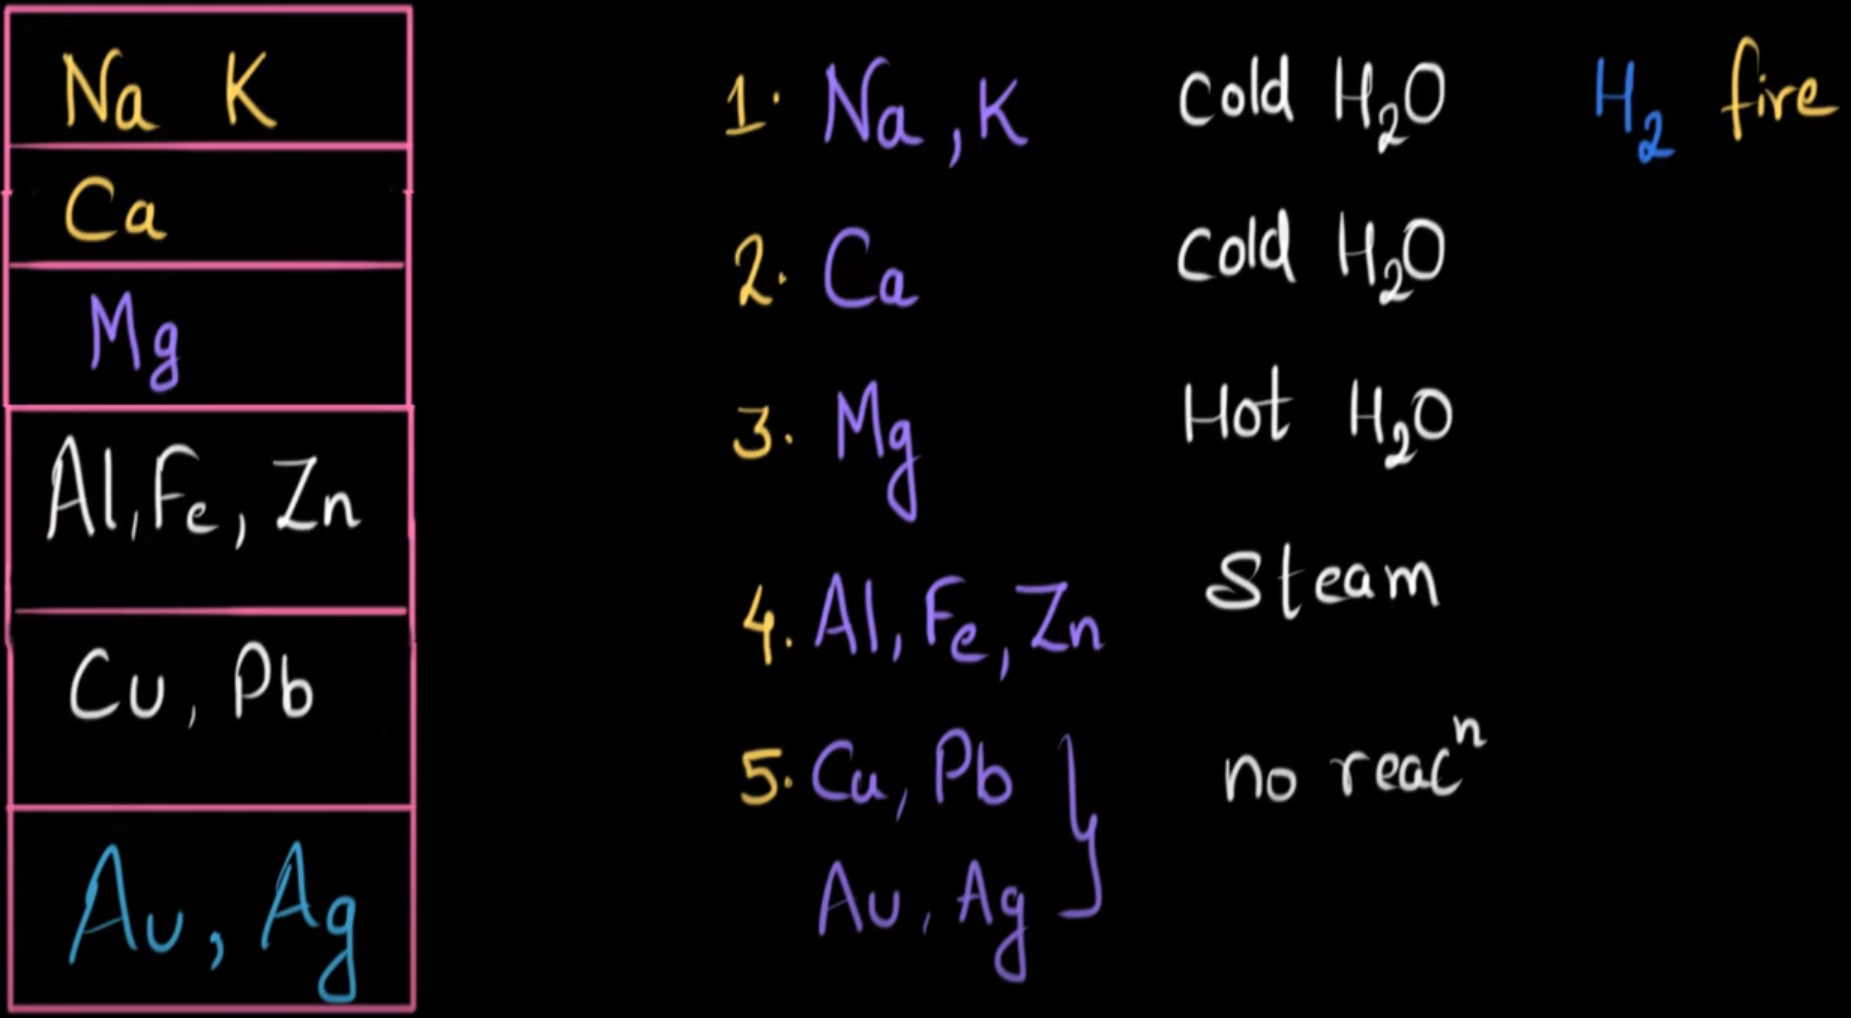 Na K
Ca
Mg
Al, Fe, Zn
Cu, Pb
Au, Ag
1. Na, K Cold H₂O H₂ fire
2. Ca Cold H₂O
3. Mg Hot H₂O
4. Al, Fe, Zn Steam
5. Cu, Pb no reacⁿ
Au, Ag